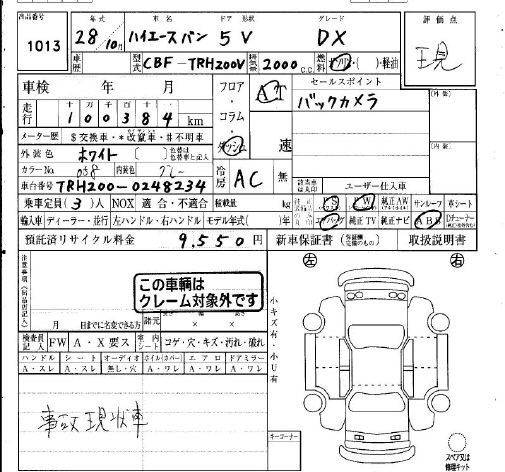 出品番号 年式 車名 ドア 形状 グレード 評価点
1013 28/10月 ハイエースバン 5 V DX 現
車歴 型式 CBF-TRH200V 排気量 2000 c.c. 燃料 ガソリン・( )・軽油
車検 年 月 フロア・コラム・ダッシュ AT 速 セールスポイント
バックカメラ
走行 十 万 千 百 十 一
100384 km
メーター歴 $交換車・*改竄車・#不明車
外装色 ホワイト
カラーNo. 058 内装色
車台番号 TRH200-0248234
冷房 AC 無 ユーザー仕入車
乗車定員(3)人 NOX 適合・不適合 積載量 kg
PS PW 純正AW サンルーフ 革シート
輸入車 ディーラー・並行 左ハンドル・右ハンドル モデル年式( )年 エアバッグ 純正TV 純正ナビ ABS
預託済リサイクル料金 9,550円 新車保証書 取扱説明書
注意事項
この車輌は
クレーム対象外です
月 日までに名変できる方 諸元 × ×
小キズ有・小U有
左 右
検査員記入 FW A・X要ス 車内 シート コゲ・穴・キズ・汚れ・破れ
ハンドル シート オーディオ ホイル(カバー) エアロ ドアミラー
A・スレ A・スレ 無し・穴 A・ワレ A・ワレ A・ワレ
事故現状車
キーコーナー
スペア又は
修理キット